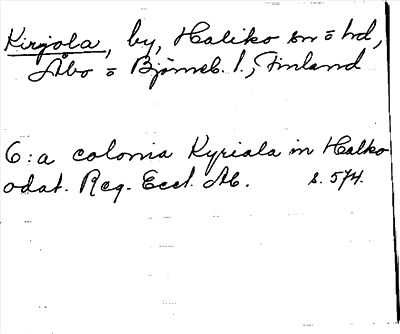 Kirjola, by, Haliko sn o hd,
Åbo o Björneb. l., Finland
6: a colonia Kyriala in Halko
odat. Reg. Eccl. Ab. s. 574.